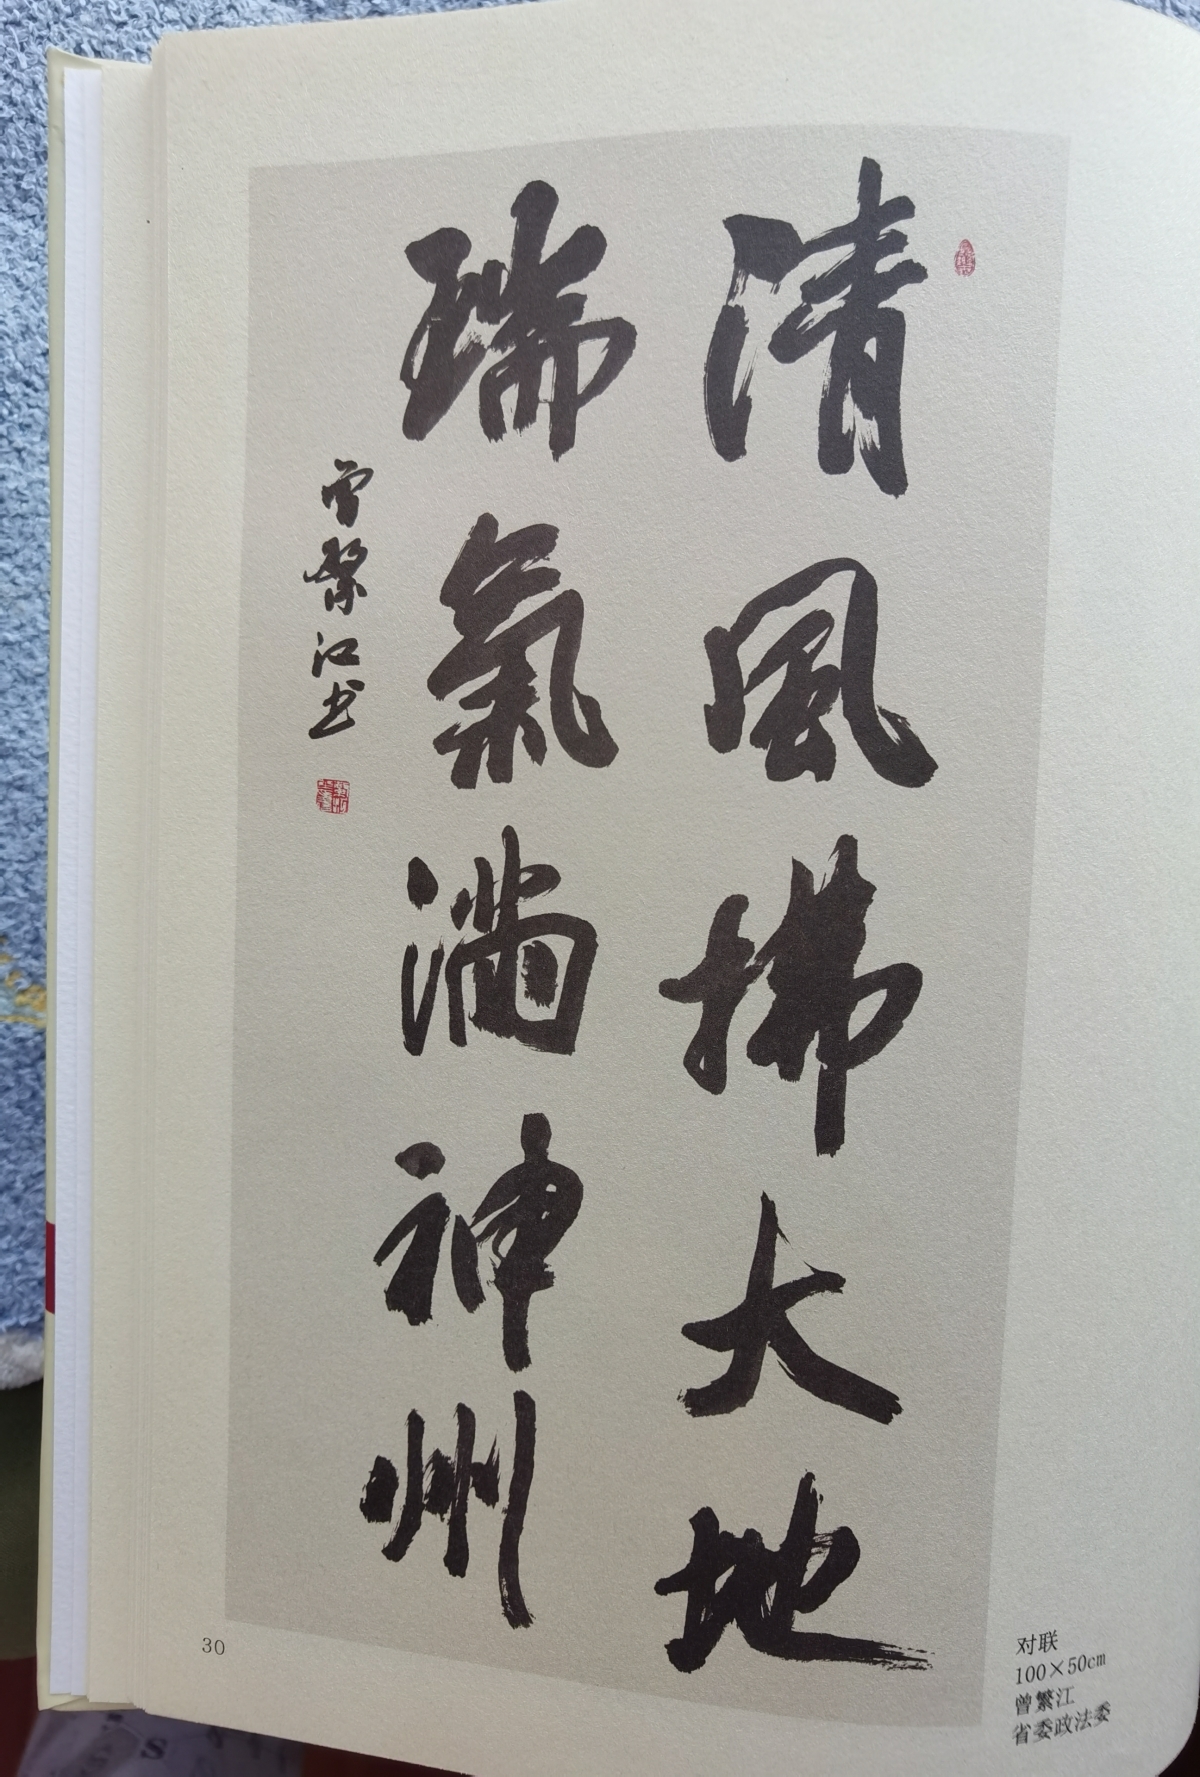 清風拂大地
瑞氣滿神州
曾繁江书
30
对联
100×50cm
曾繁江
省委政法委